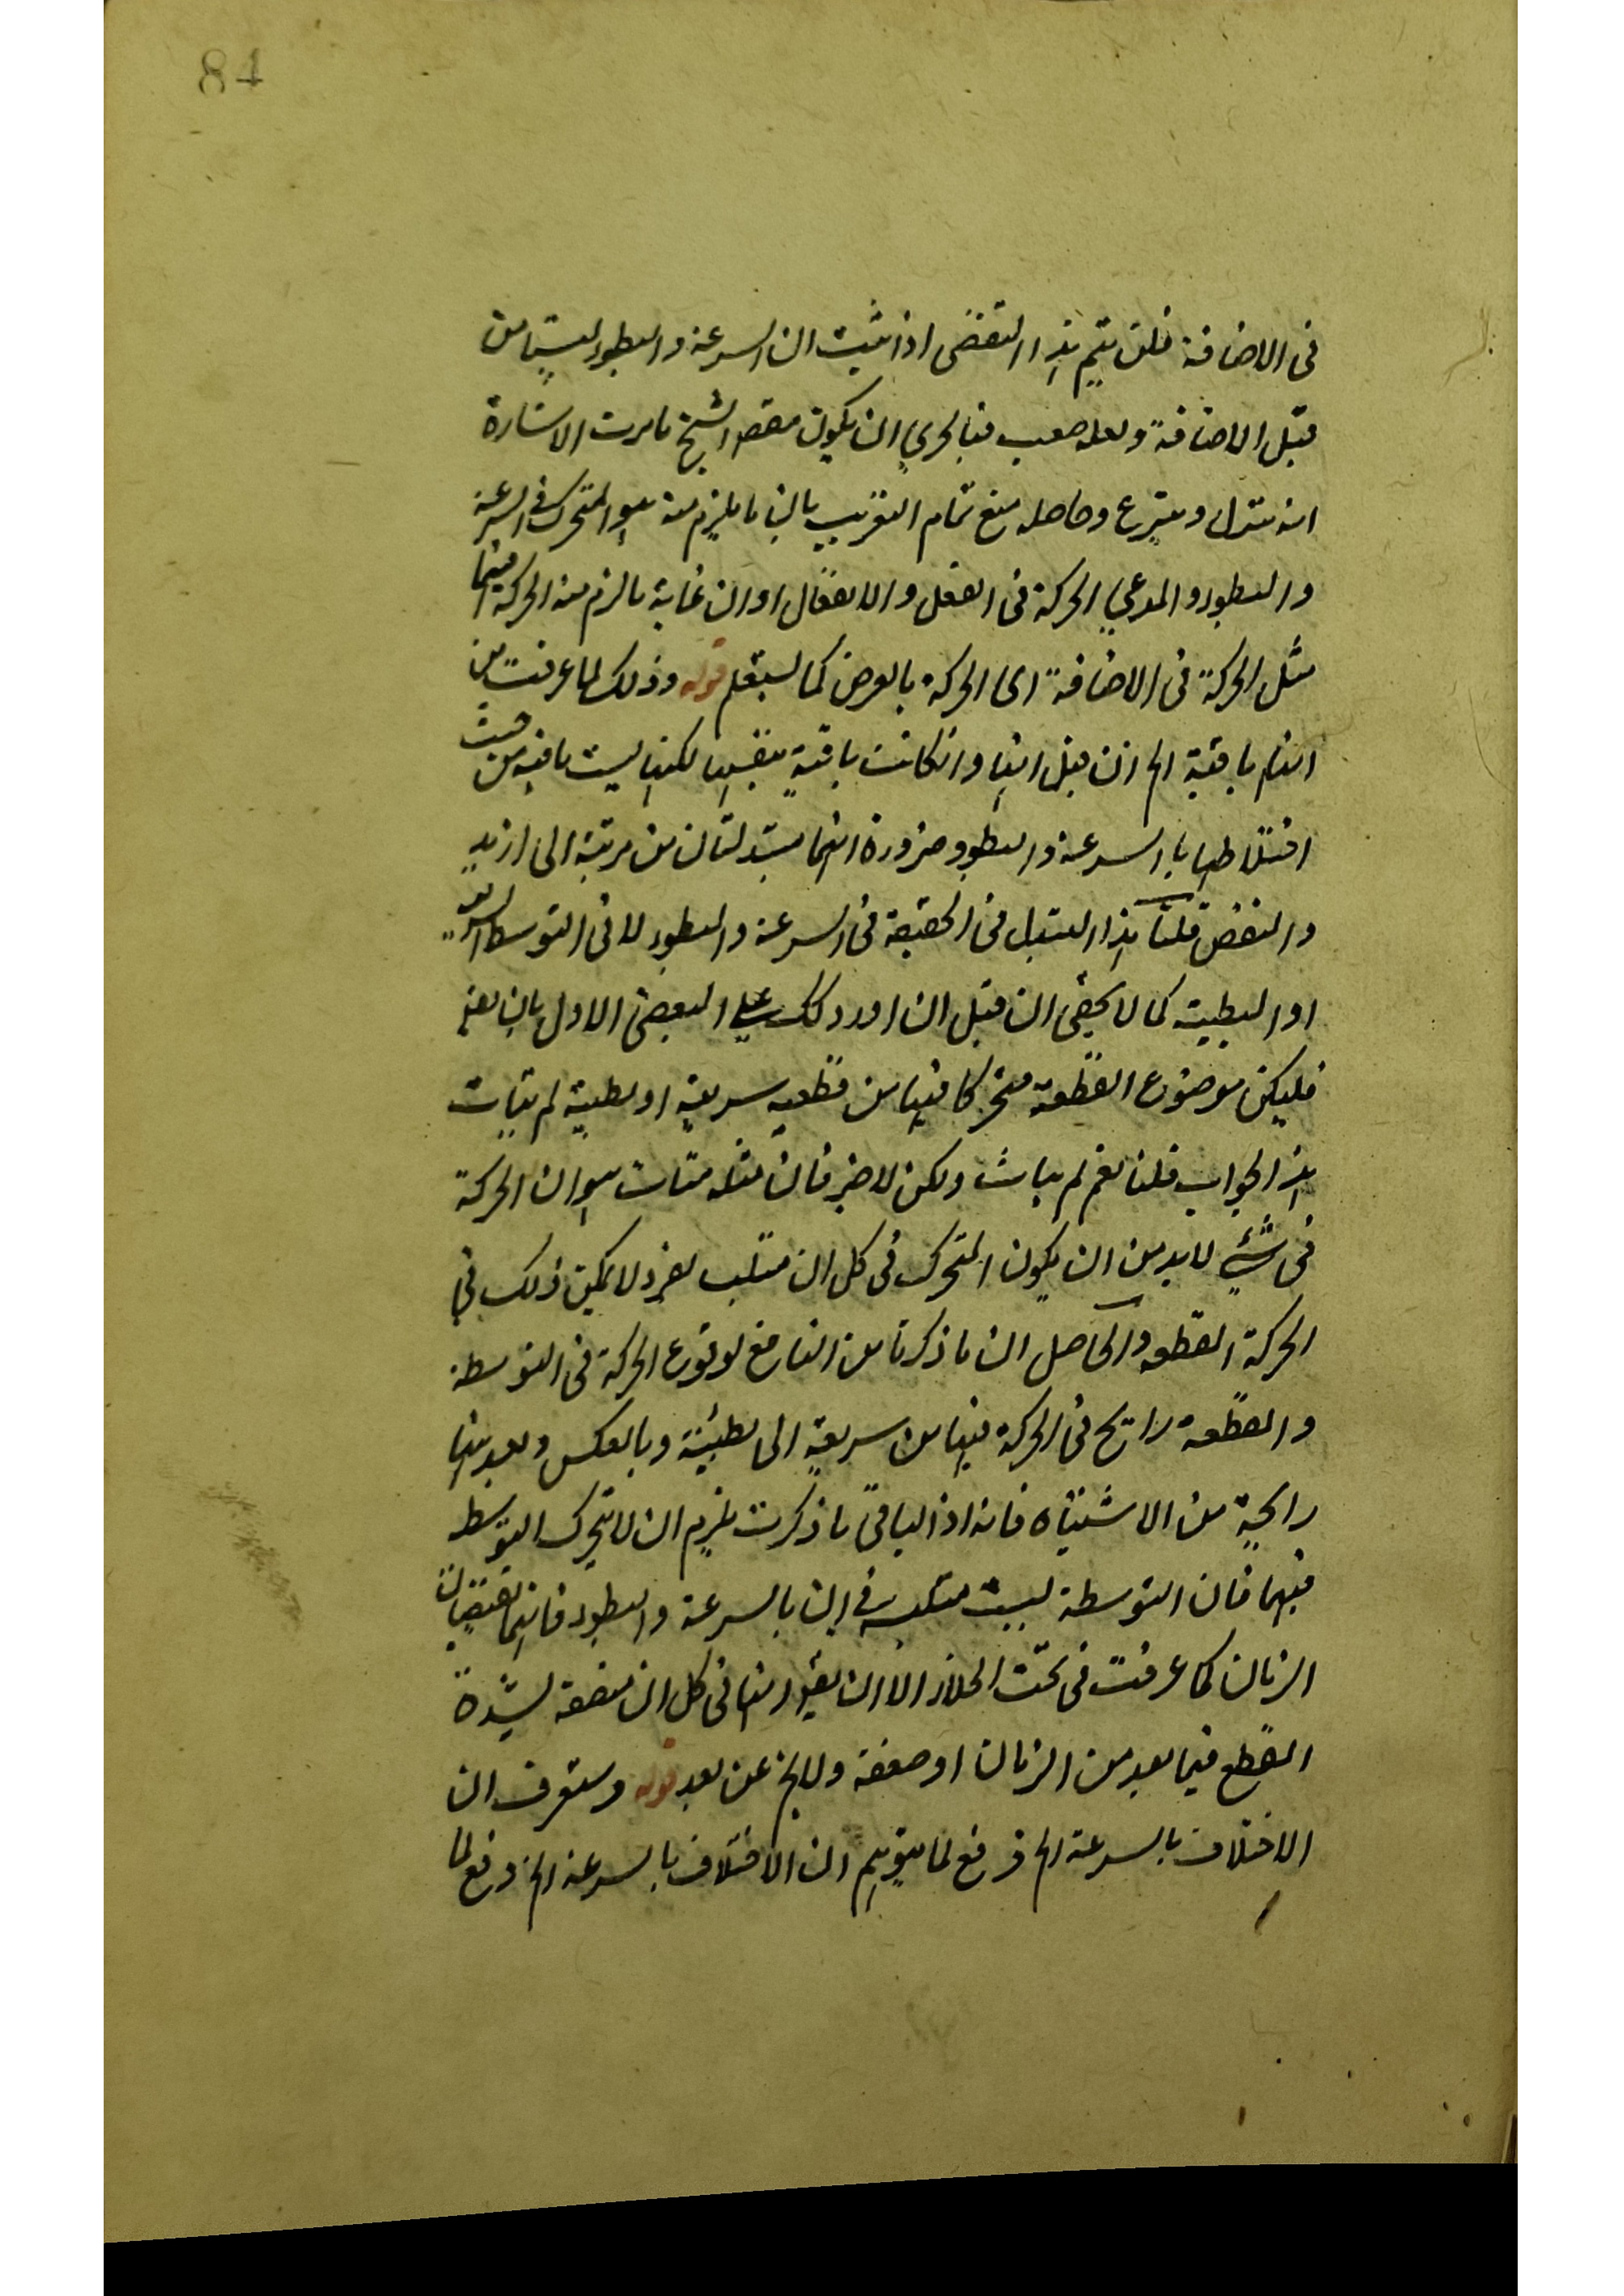 84
في الاضافة فلن يتم هذا النقض اذا ثبت ان السرعة والبطوء ليستا من
قبل الاضافة ولعله صعب فبالحري ان يكون مقصد الشيخ ما مرت الاشارة
انه تنزل وتبرع وحاصله منع تمام التقريب بان ما يلزم منه هو المتحرك في السرعة
والبطوء والمدعي الحركة في الفعل والانفعال او ان غاية ما لزم منه الحركة فيهما
مثل الحركة في الاضافة اى الحركة بالعرض كما ستعلم قوله وذلك لما عرفت من
انها باقية الخ ان قيل انها وان كانت باقية بنفسها لكنها ليست باقية من حيث
اختلاطها بالسرعة والبطوء ضرورة انهما متبدلتان من مرتبة الى ازيد
والنقص قلنا هذا التبدل في الحقيقة في السرعة والبطوء لا في التوسط السريع
او البطيئة كما لا يخفى ان قيل ان اورد ذلك على البعض الاول بان نعم
فليكن موضوع القطعة متحركا فيها من قطعية سريعة او بطيئة لم يتأت
هذا الجواب قلنا نعم لم يتأت ولكن لا ضير فان مثله متأت هو ان الحركة
في شيء لا بد من ان يكون المتحرك في كل ان متلبسا بفرد لا يمكن ذلك في
الحركة القطعه والحاصل ان ما ذكرنا من المانع لوقوع الحركة في التوسطة
والقطعة رائج في الحركة فيها من سريعة الى بطيئة وبالعكس وبعد فيها
رايحة من الاشتباه فانه اذ الباقي ما ذكرت يلزم ان لا يتحرك التوسط
فيهما فان التوسطة ليست متلبسة في ان بالسرعة والبطوء فانهما تقتضيان
الزمان كما عرفت في بحث الخلاء الا ان يقيد انها في كل ان متصفة بشدة
القطع فيما بعد من الزمان او ضعفه ولا يخ عن بعد قوله وستعرف ان
الاختلاف بالسرعة الخ دفع لما يتوهم ان الاختلاف بالسرعة الخ دفع لما